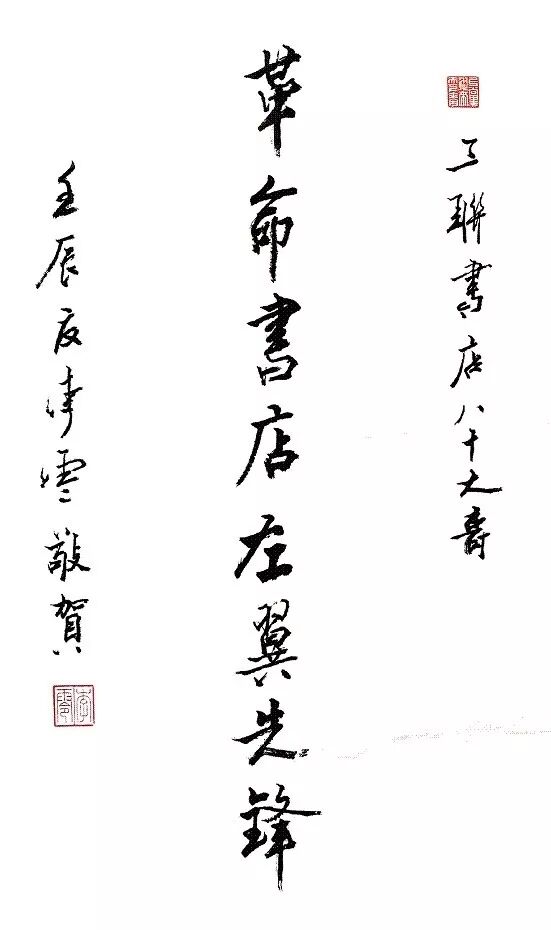 三聯書店八十大壽
革命書店左翼先鋒
壬辰夏李零敬賀
李零